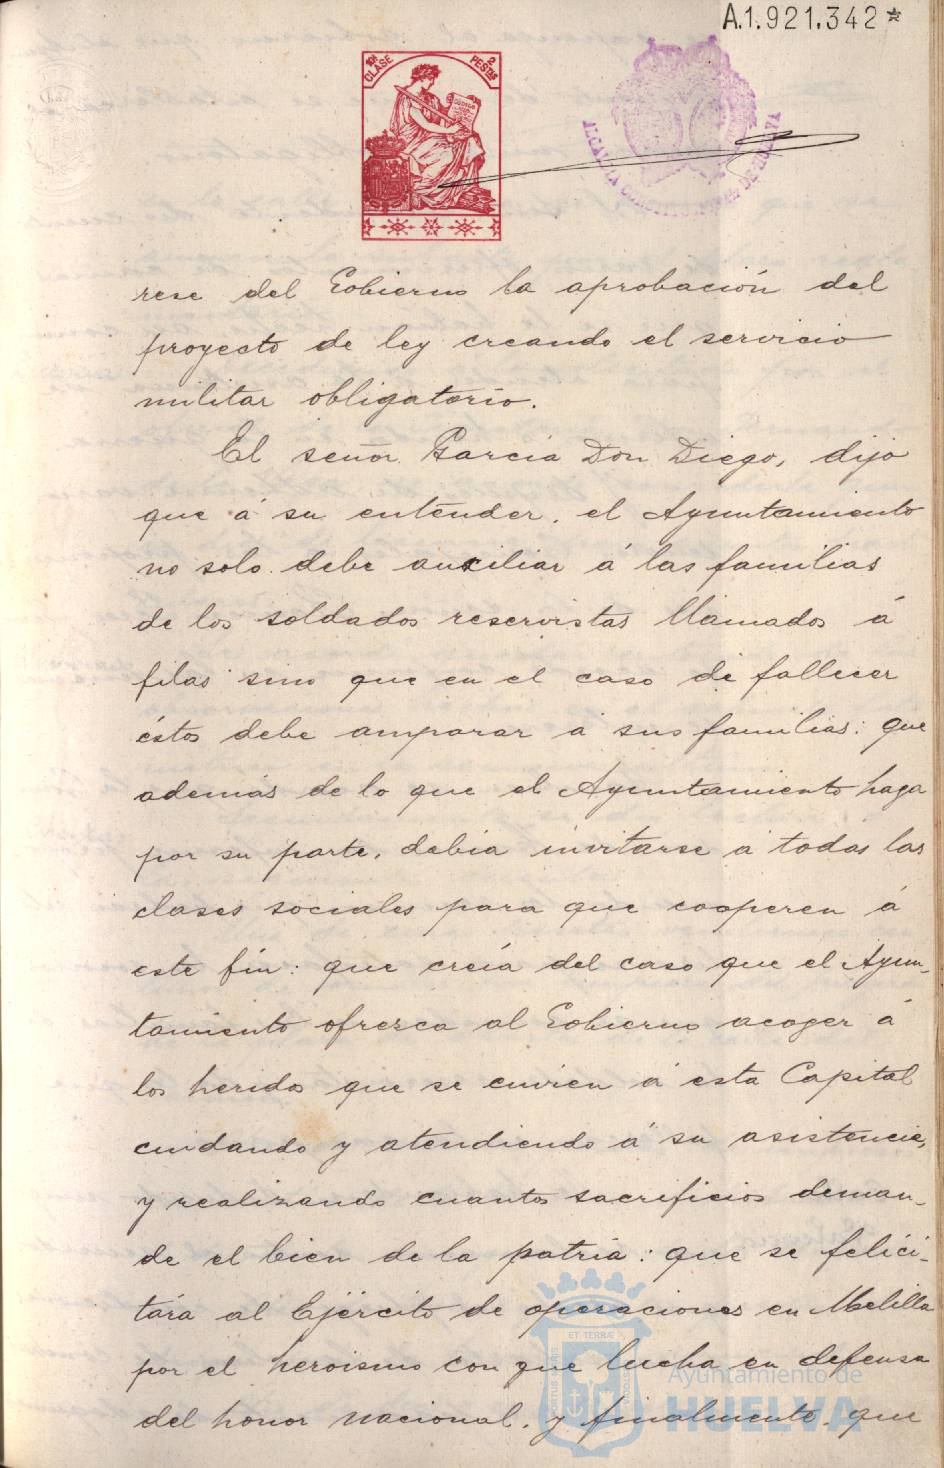 A.1.921.342*
10ª CLASE
2 PESTAS
ALCALDIA CONSTITUCIONAL DE HUELVA
rese del Gobierno la aprobación del
proyecto de ley creando el servicio
militar obligatorio.
El señor García Don Diego, dijo
que á su entender, el Ayuntamiento
no solo debe auxiliar á las familias
de los soldados reservistas llamados á
filas sino que en el caso de fallecer
éstos debe amparar á sus familias: que
además de lo que el Ayuntamiento haga
por su parte, debía invitarse á todas las
clases sociales para que cooperen á
este fín: que creía del caso que el Ayun-
tamiento ofrezca al Gobierno acoger á
los heridos que se envíen á esta Capital
cuidando y atendiendo á su asistencia,
y realizando cuantos sacrificios deman-
de el bien de la patria: que se felici-
tára al Ejército de operaciones en Melilla
por el heroismo con que lucha en defensa
del honor nacional, y finalmente, que
ET TERRÆ
Ayuntamiento de
HUELVA